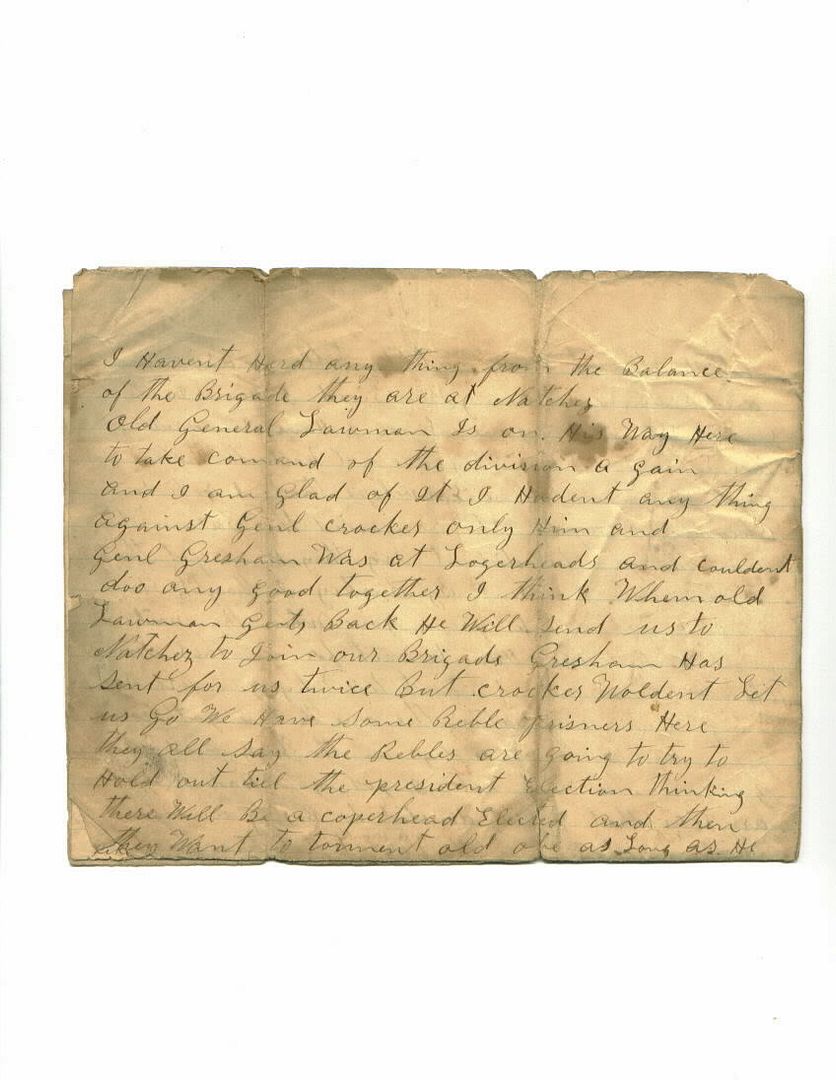 I Havent Herd any thing from the Balance
of the Brigade they are at Natchez
Old General Lawman Is on His Way Here
to take comand of the division a gain
and I am Glad of It I Hadent any thing
against Genl crocker only Him and
Genl Gresham Was at Logerheads and couldent
doo any good together I think When old
Lawman Gets Back He Will Send us to
Natchez to Join our Brigade Gresham Has
sent for us twice But crocker Woldent Let
us Go We Have Some Reble prisners Here
they all Say the Rebles are going to try to
Hold out till the president Election thinking
there Will Be a coperhead Elected and then
they Want to torment old abe as Long as He